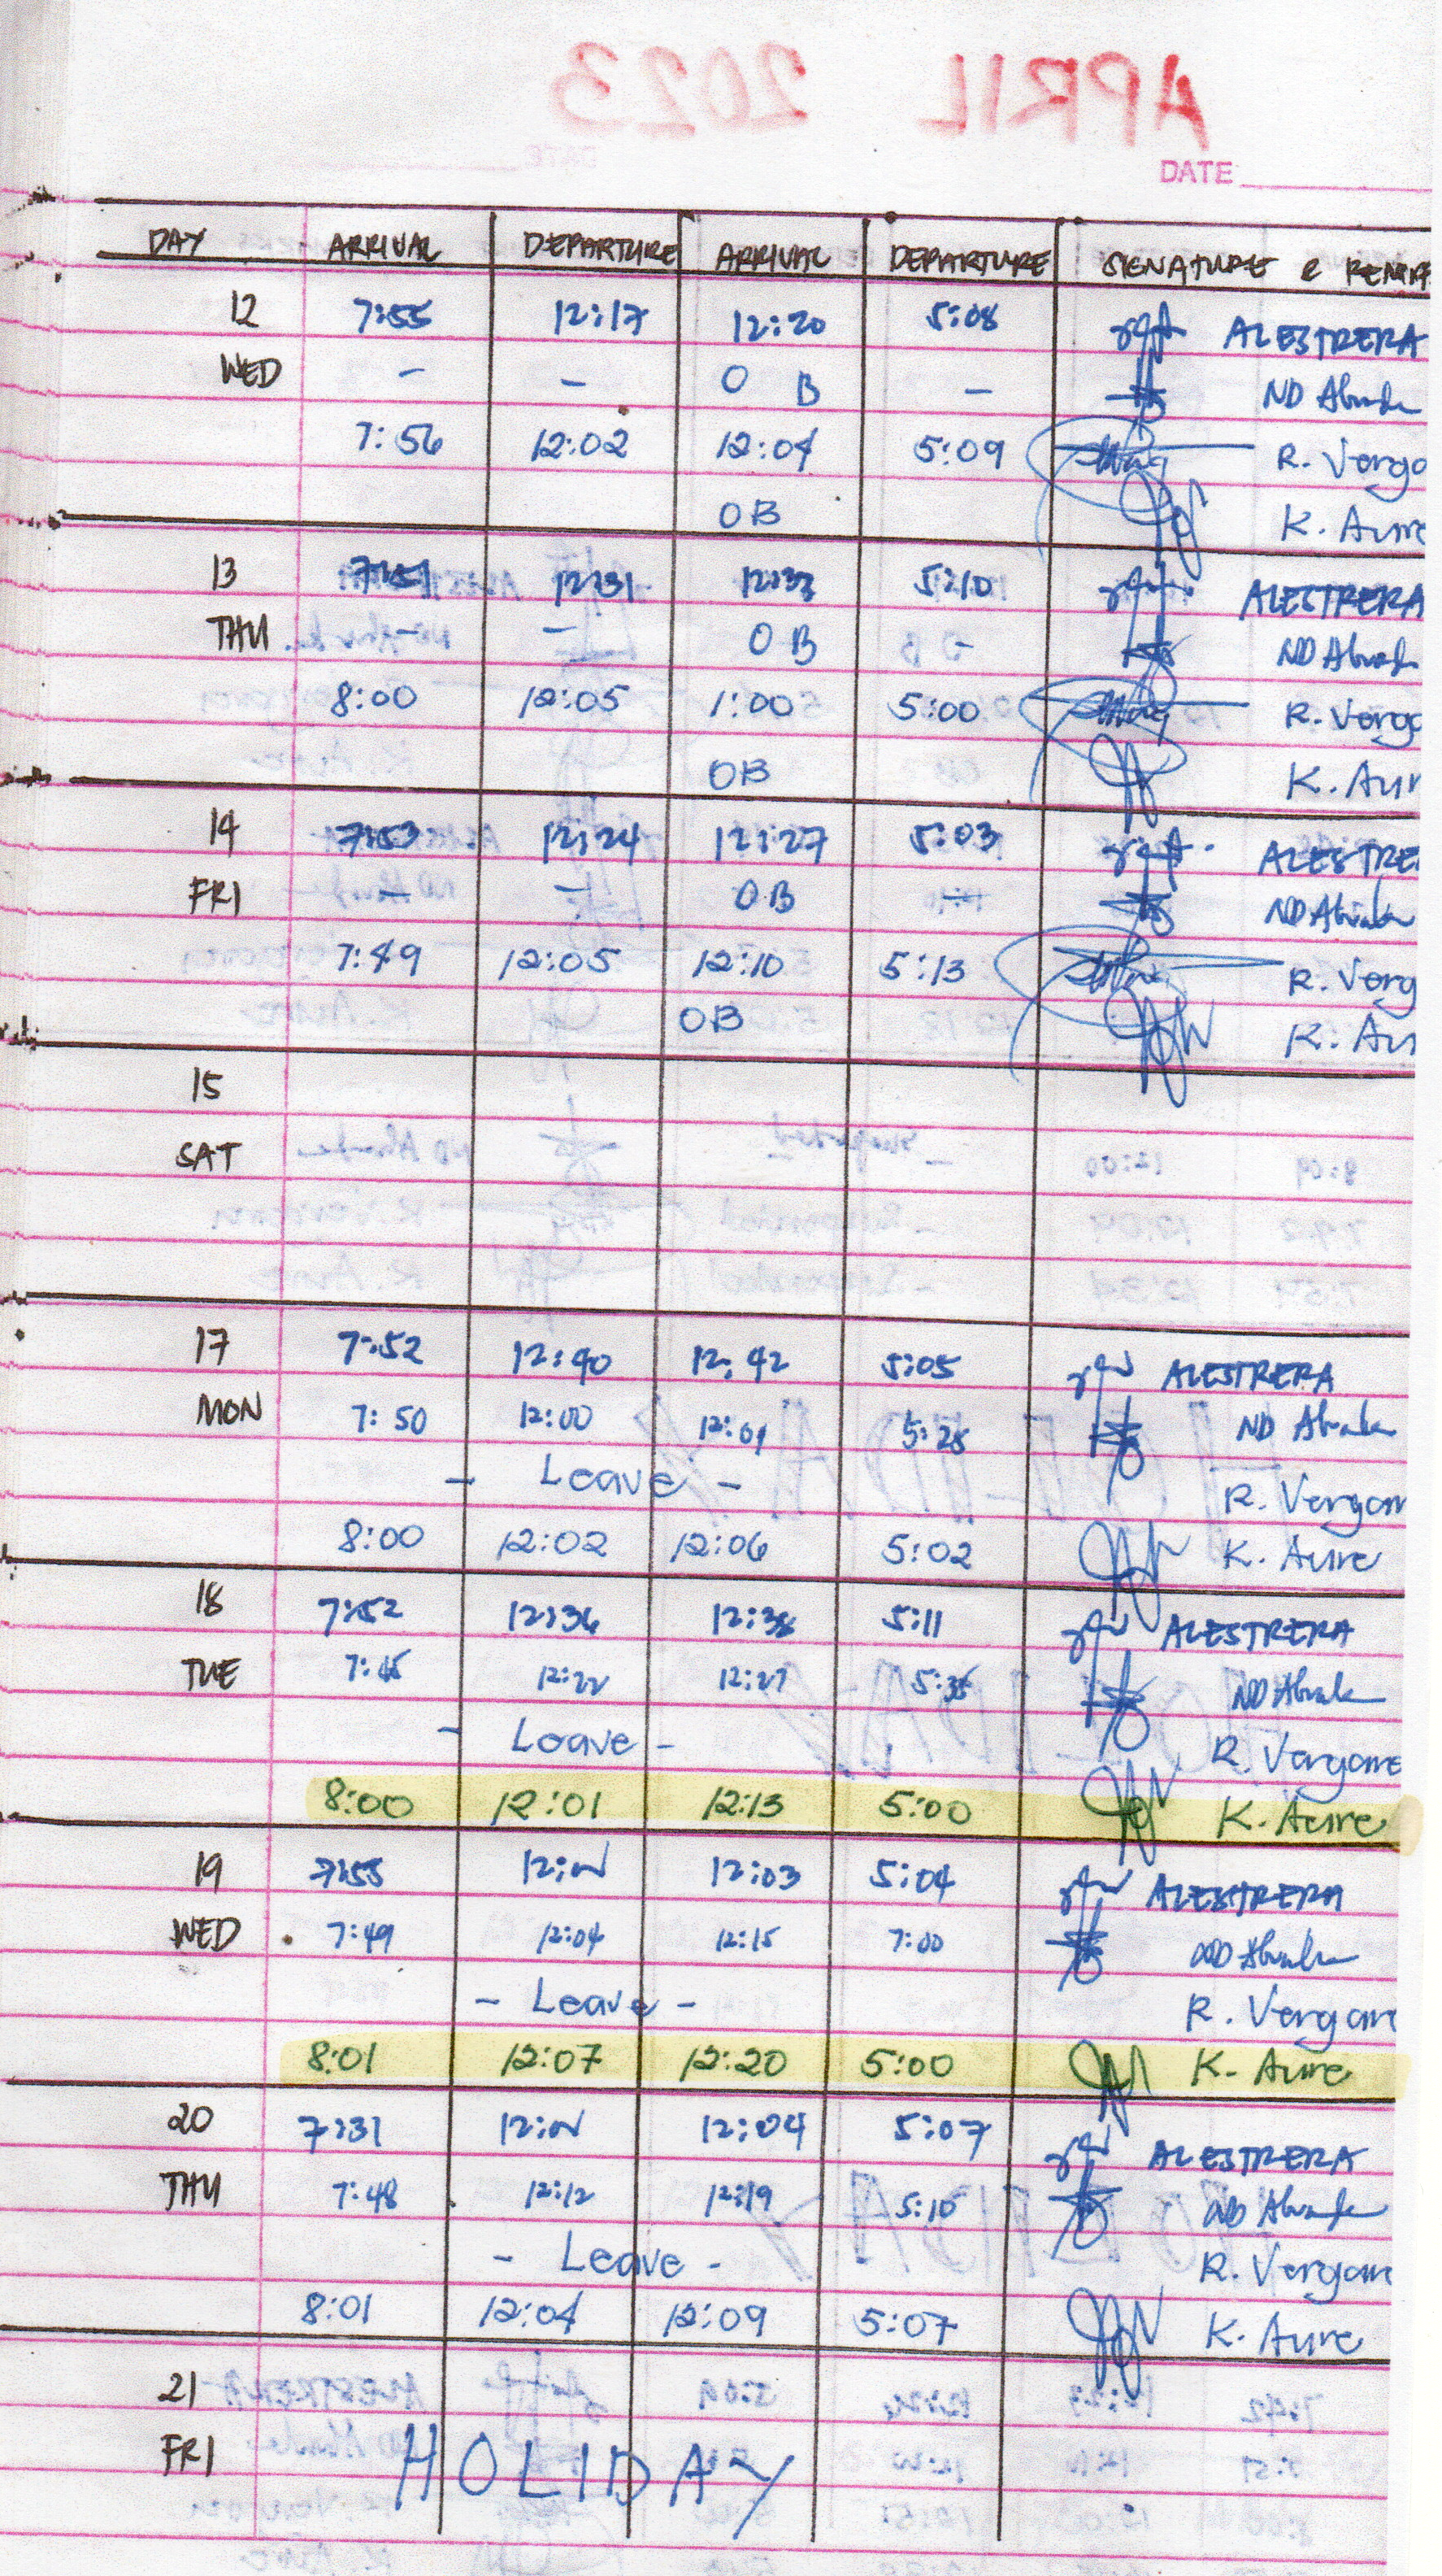 APRIL 2023
DATE
DAY ARRIVAL DEPARTURE ARRIVAL DEPARTURE SIGNATURE & REMAR
12 7:55 12:17 12:20 5:08 ALESTRERA
WED - - O B - ND
7:56 12:02 12:04 5:09 R. Verga
OB K. Aure
13 7:51 12:31 12:33 5:10 ALESTRERA
THU - - O B - ND
8:00 12:05 1:00 5:00 R. Verga
OB K. Aur
14 7:53 12:24 12:27 5:03 ALESTRE
FRI - - OB - ND
7:49 12:05 12:10 5:13 R. Verg
OB K. Au
15
SAT
17 7:52 12:40 12:42 5:05 ALESTRERA
MON 7:50 12:00 12:01 5:25 ND
- Leave - R. Vergar
8:00 12:02 12:06 5:02 K. Aure
18 7:52 12:36 12:38 5:11 ALESTRERA
TUE 12:22 12:27 5:35 ND
- Leave - R. Vergare
8:00 12:01 12:13 5:00 K. Aure
19 7:55 12:N 12:03 5:04 ALESTRERA
WED 7:49 12:04 12:15 7:00 ND
- Leave - R. Vergar
8:01 12:07 12:20 5:00 K. Aure
20 7:31 12:N 12:04 5:07 ALESTRERA
THU 7:48 12:12 12:19 5:10 ND
- Leave - R. Vergar
8:01 12:04 12:09 5:07 K. Aure
21
FRI HOLIDAY